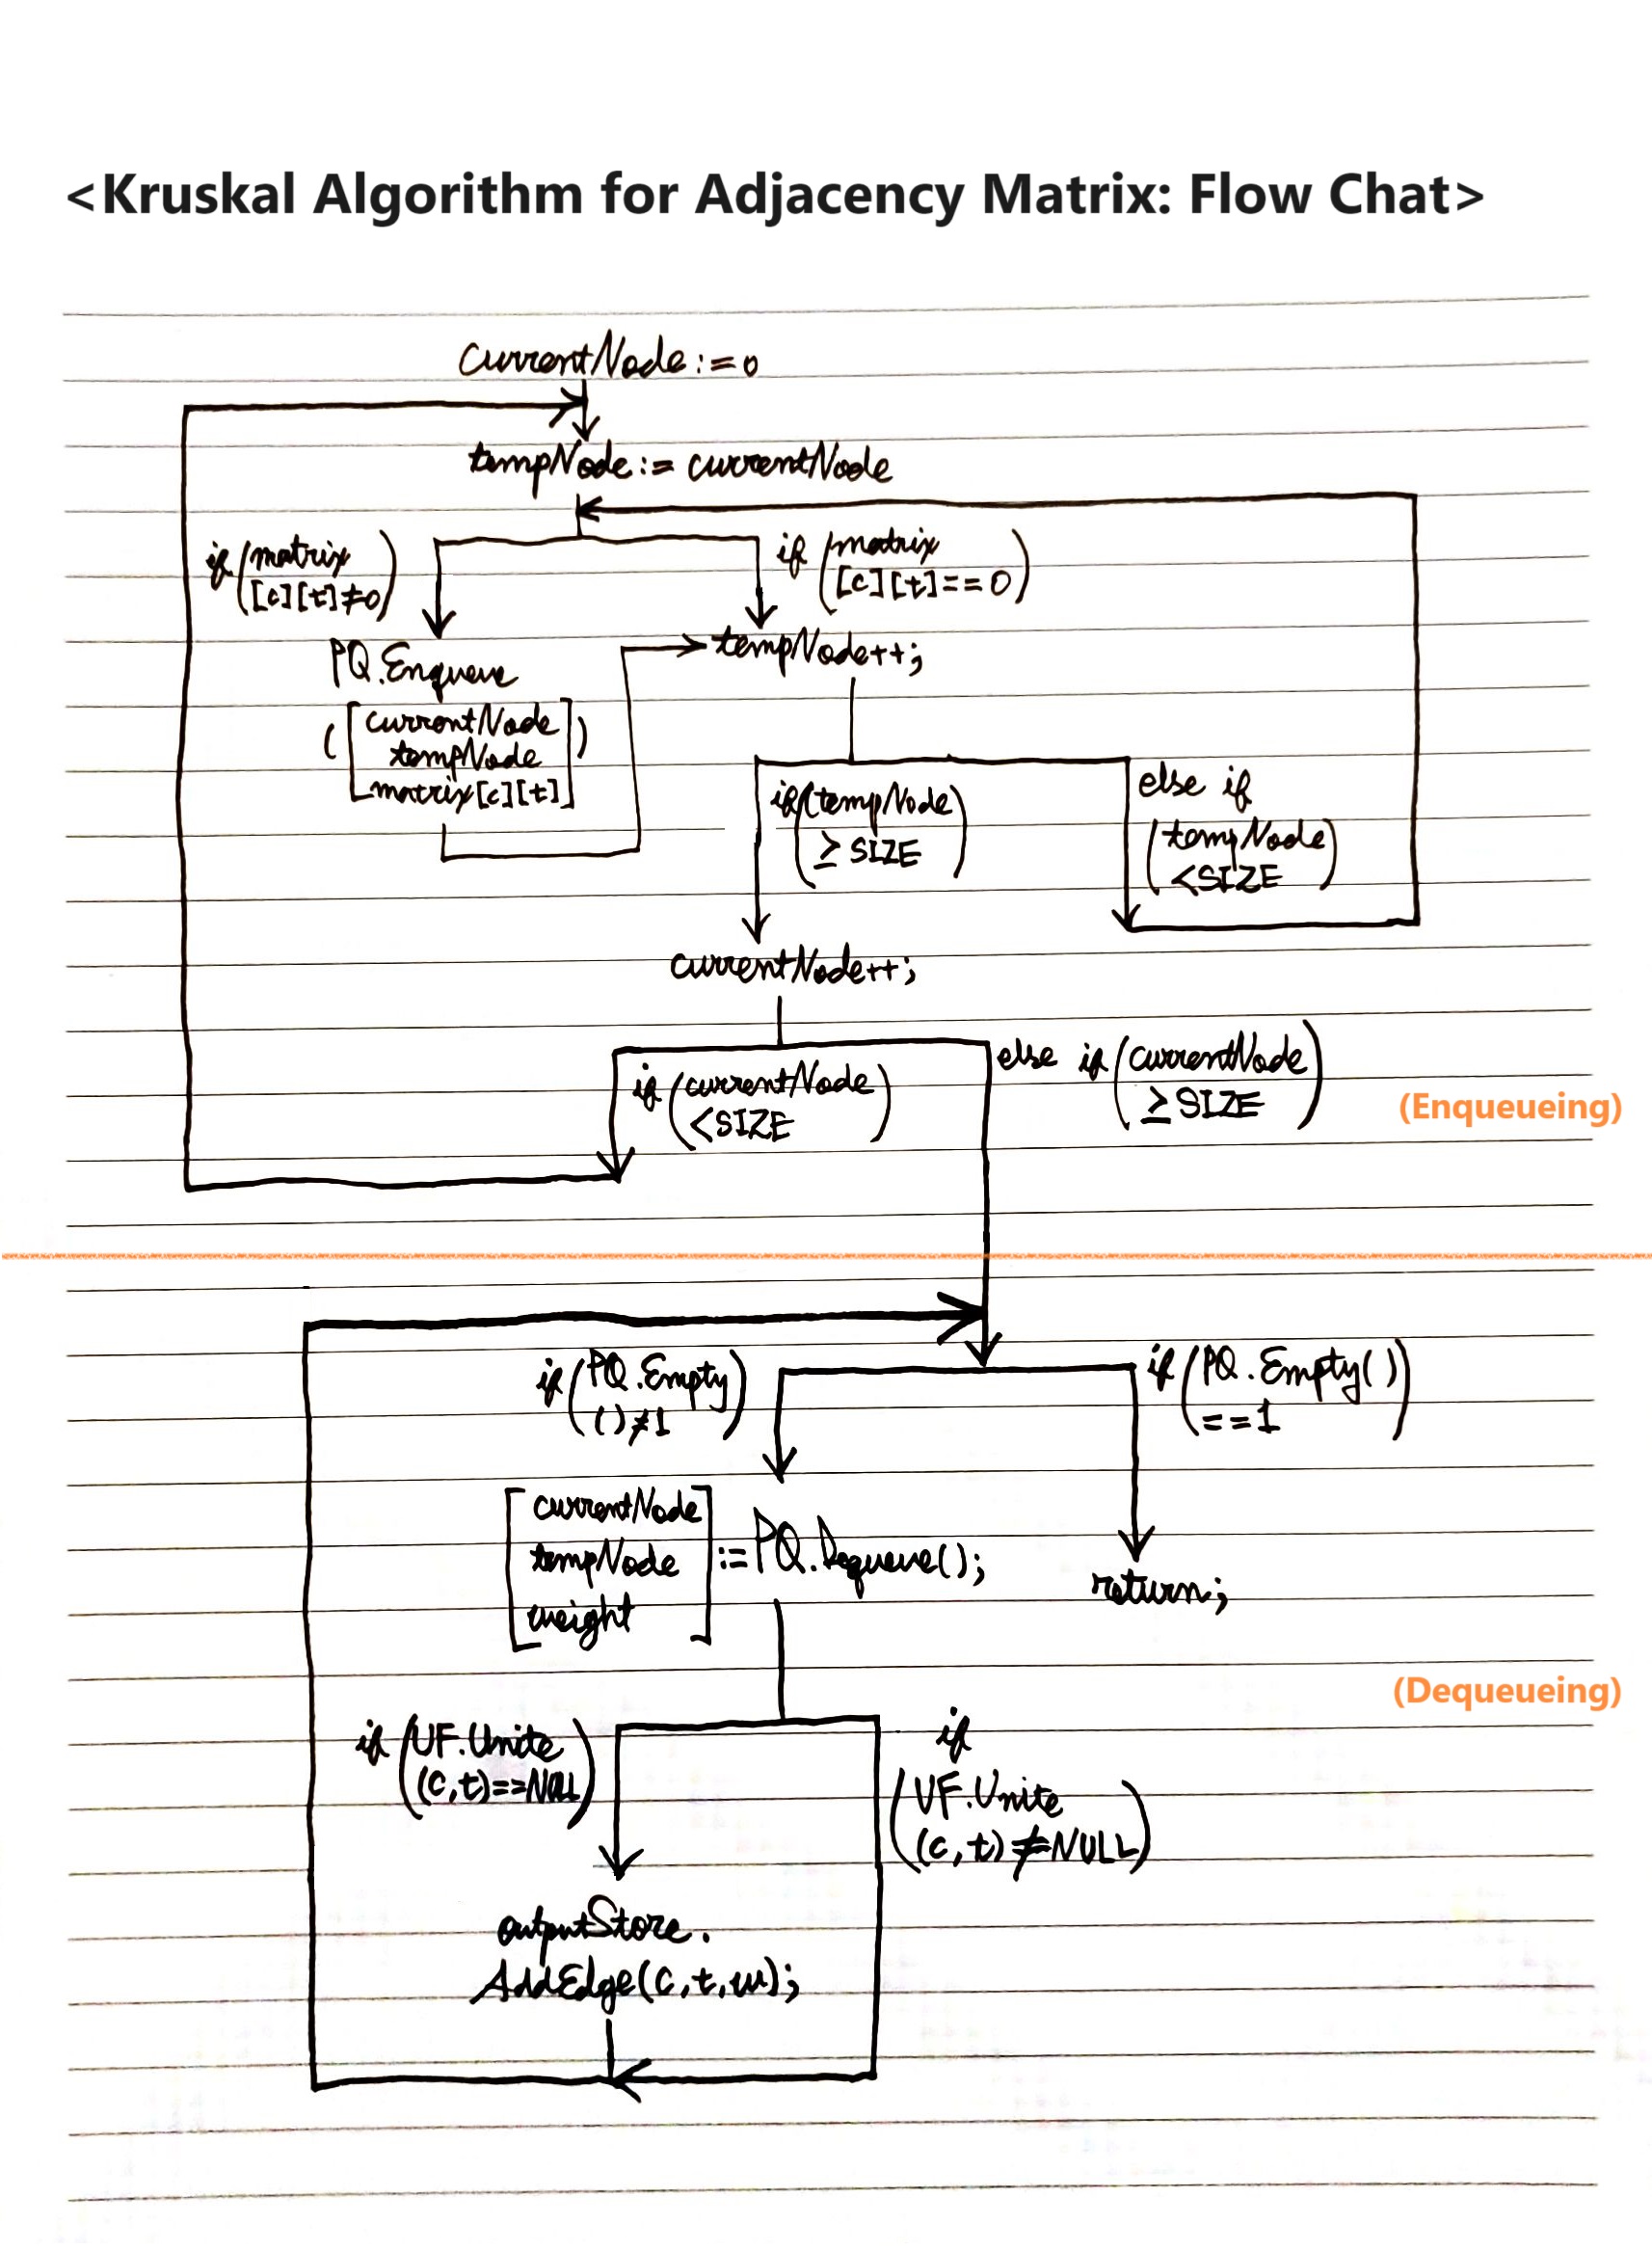 <Kruskal Algorithm for Adjacency Matrix: Flow Chat>
currentNode:=0
tempNode:= currentNode
if (matrix
[c][t]≠0)
if (matrix
[c][t]==0)
PQ.Enqueue
([currentNode
tempNode
matrix[c][t]])
tempNode++;
if(tempNode
≥ SIZE)
else if
(tempNode
<SIZE)
currentNode++;
if (currentNode
<SIZE)
else if (currentNode
≥SIZE)
(Enqueueing)
if (PQ.Empty
()≠1)
if (PQ.Empty()
==1)
[currentNode
tempNode
weight] := PQ.Dequeue();
return;
(Dequeueing)
if (UF.Unite
(c,t)==NULL)
if
(UF.Unite
(c,t)≠NULL)
outputStore.
AddEdge(c,t,w);